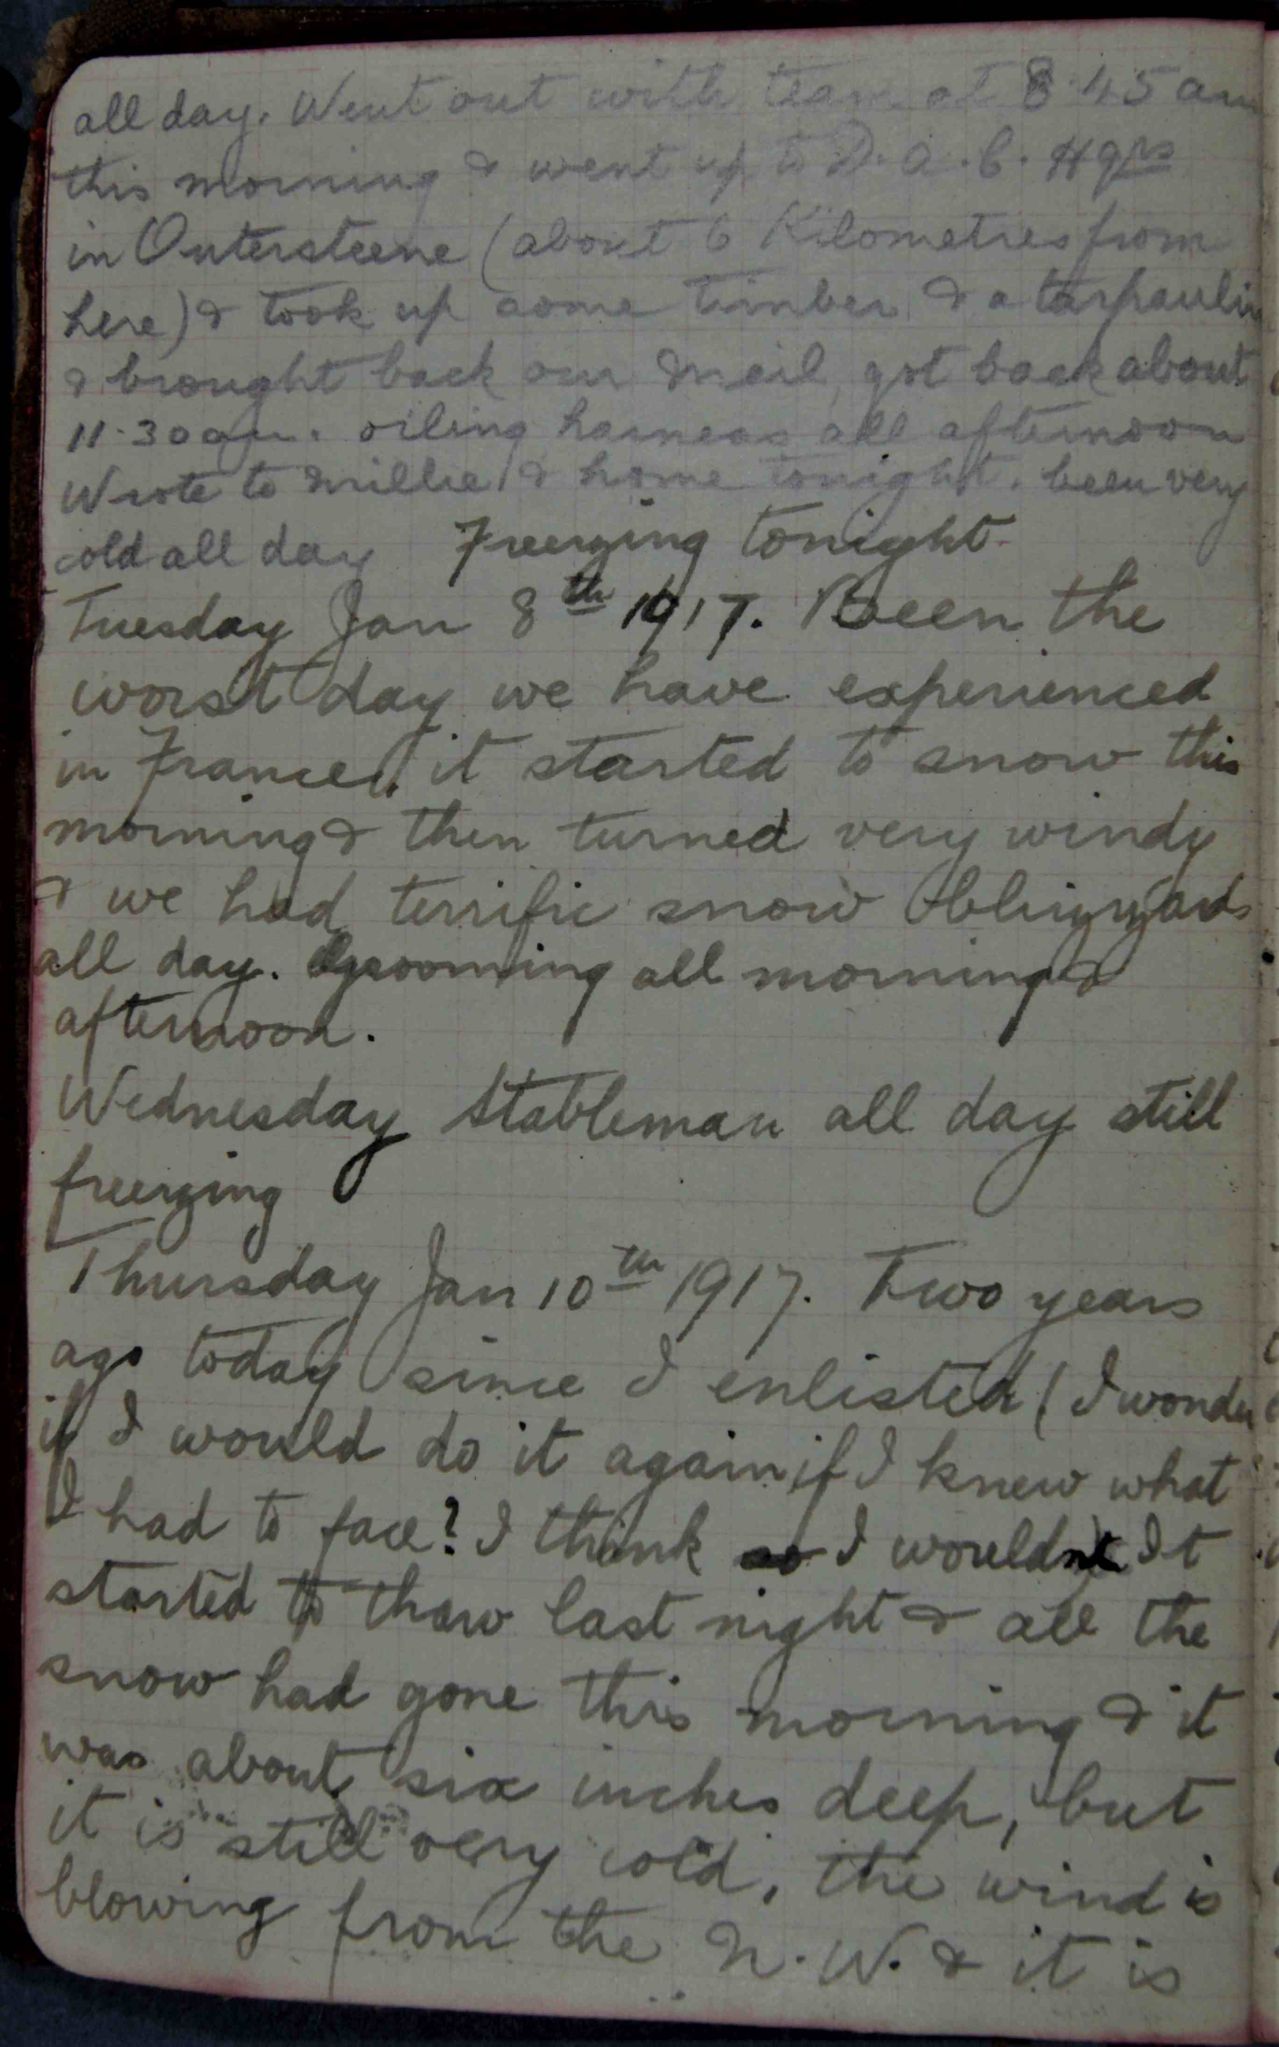 all day. Went out with team at 8.45 am
this morning & went up to D.A.C. Hqrs
in Outersteene (about 6 Kilometres from
here) & took up some timber & a tarpaulin
& brought back our mail, got back about
11.30am. oiling harness all afternoon
Wrote to Millie & home tonight. been very
cold all day Freezing tonight
Tuesday Jan 8th 1917. Been the
worst day we have experienced
in France, it started to snow this
morning & then turned very windy
& we had terrific snow blizzards
all day. Grooming all morning &
afternoon.
Wednesday Stableman all day still
freezing
Thursday Jan 10th 1917. Two years
ago today since I enlisted (I wonder
if I would do it again if I knew what
I had to face? I think so I wouldnt) It
started to thaw last night & all the
snow had gone this morning & it
was about six inches deep, but
it is still very cold, the wind is
blowing from the N.W. & it is